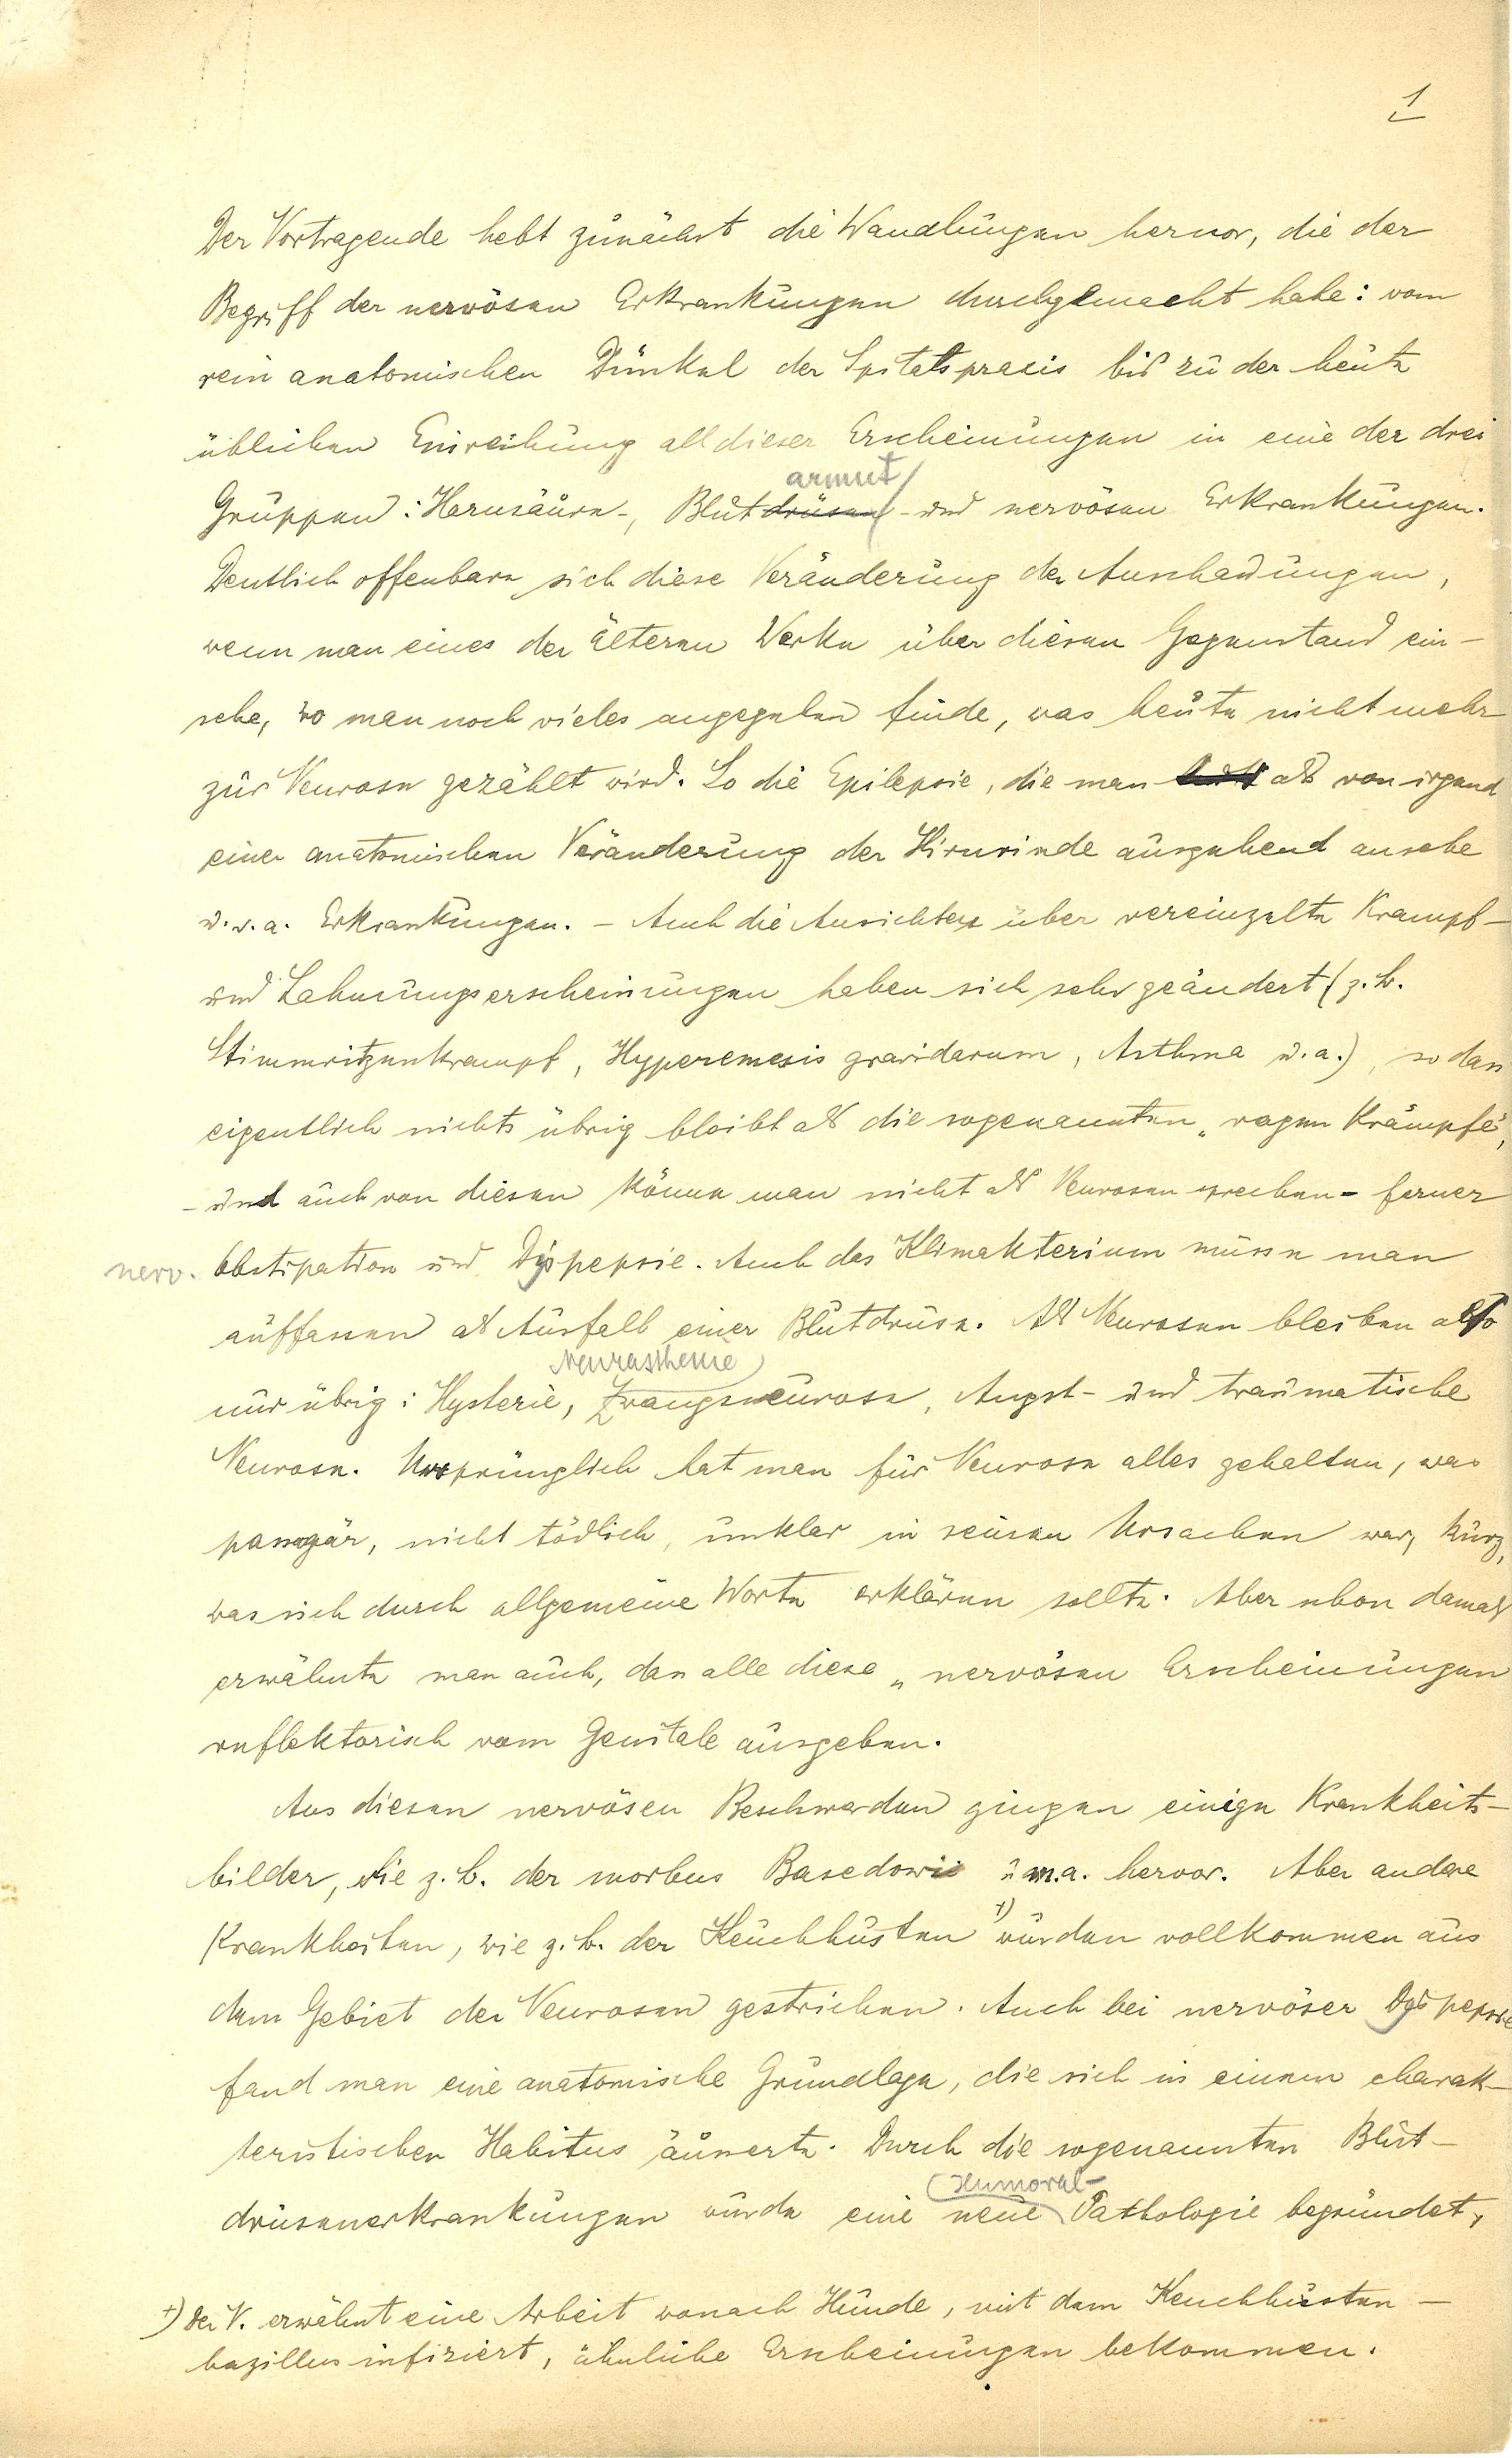 1
Der Vortragende hebt zunächst die Wandlungen hervor, die der
Begriff der nervösen Erkrankungen durchgemacht habe: vom
rein anatomischen Dünkel der Spitalspraxis bis zu der heute
üblichen Einreihung all dieser Erscheinungen in eine der drei
armut
Gruppen: Harnsäure-, Blutdrüsen- und nervösen Erkrankungen.
Deutlich offenbare sich diese Veränderung der Anschauungen,
wenn man eines der älteren Werke über diesen Gegenstand ein-
sehe, wo man noch vieles angegeben finde, was heute nicht mehr
zur Neurose gezählt wird. So die Epilepsie, die man als von irgend
einer anatomischen Veränderung der Hirnrinde ausgehend ansehe
u. v. a. Erkrankungen. - Auch die Ansichten über vereinzelte Krampf-
und Lähmungserscheinungen haben sich sehr geändert (z. B.
Stimmritzenkrampf, Hyperemesis gravidarum, Asthma u. a.), so dass
eigentlich nichts übrig bleibt als die sogenannten „vagen Krämpfe",
- und auch von diesen könne man nicht als Neurosen sprechen - ferner
nerv. Obstipation und Dyspepsie. Auch das Klimakterium müsse man
auffassen als Ausfall einer Blutdrüse. Als Neurosen bleiben also
Neurasthenie
nur übrig: Hysterie, Zwangsneurose, Angst- und traumatische
Neurose. Ursprünglich hat man für Neurose alles gehalten, was
passagär, nicht tödlich, unklar in seinen Ursachen war, kurz,
was sich durch allgemeine Worte erklären sollte. Aber schon damals
erwähnte man auch, dass alle diese „nervösen Erscheinungen
reflektorisch vom Genitale ausgehen.
Aus diesen nervösen Beschwerden gingen einige Krankheits-
bilder, wie z. B. der morbus Basedowii u. m. a. hervor. Aber andere
Krankheiten, wie z. B. der Keuchhusten +) wurden vollkommen aus
dem Gebiet der Neurosen gestrichen. Auch bei nervöser Dyspepsie
fand man eine anatomische Grundlage, die sich in einem charak-
teristischen Habitus äusserte. Durch die sogenannten Blut-
Humoral-
drüsenerkrankungen wurde eine neue Pathologie begründet,
+) Der V. erwähnt eine Arbeit wonach Hunde, mit dem Keuchhusten-
bazillus infiziert, ähnliche Erscheinungen bekommen.